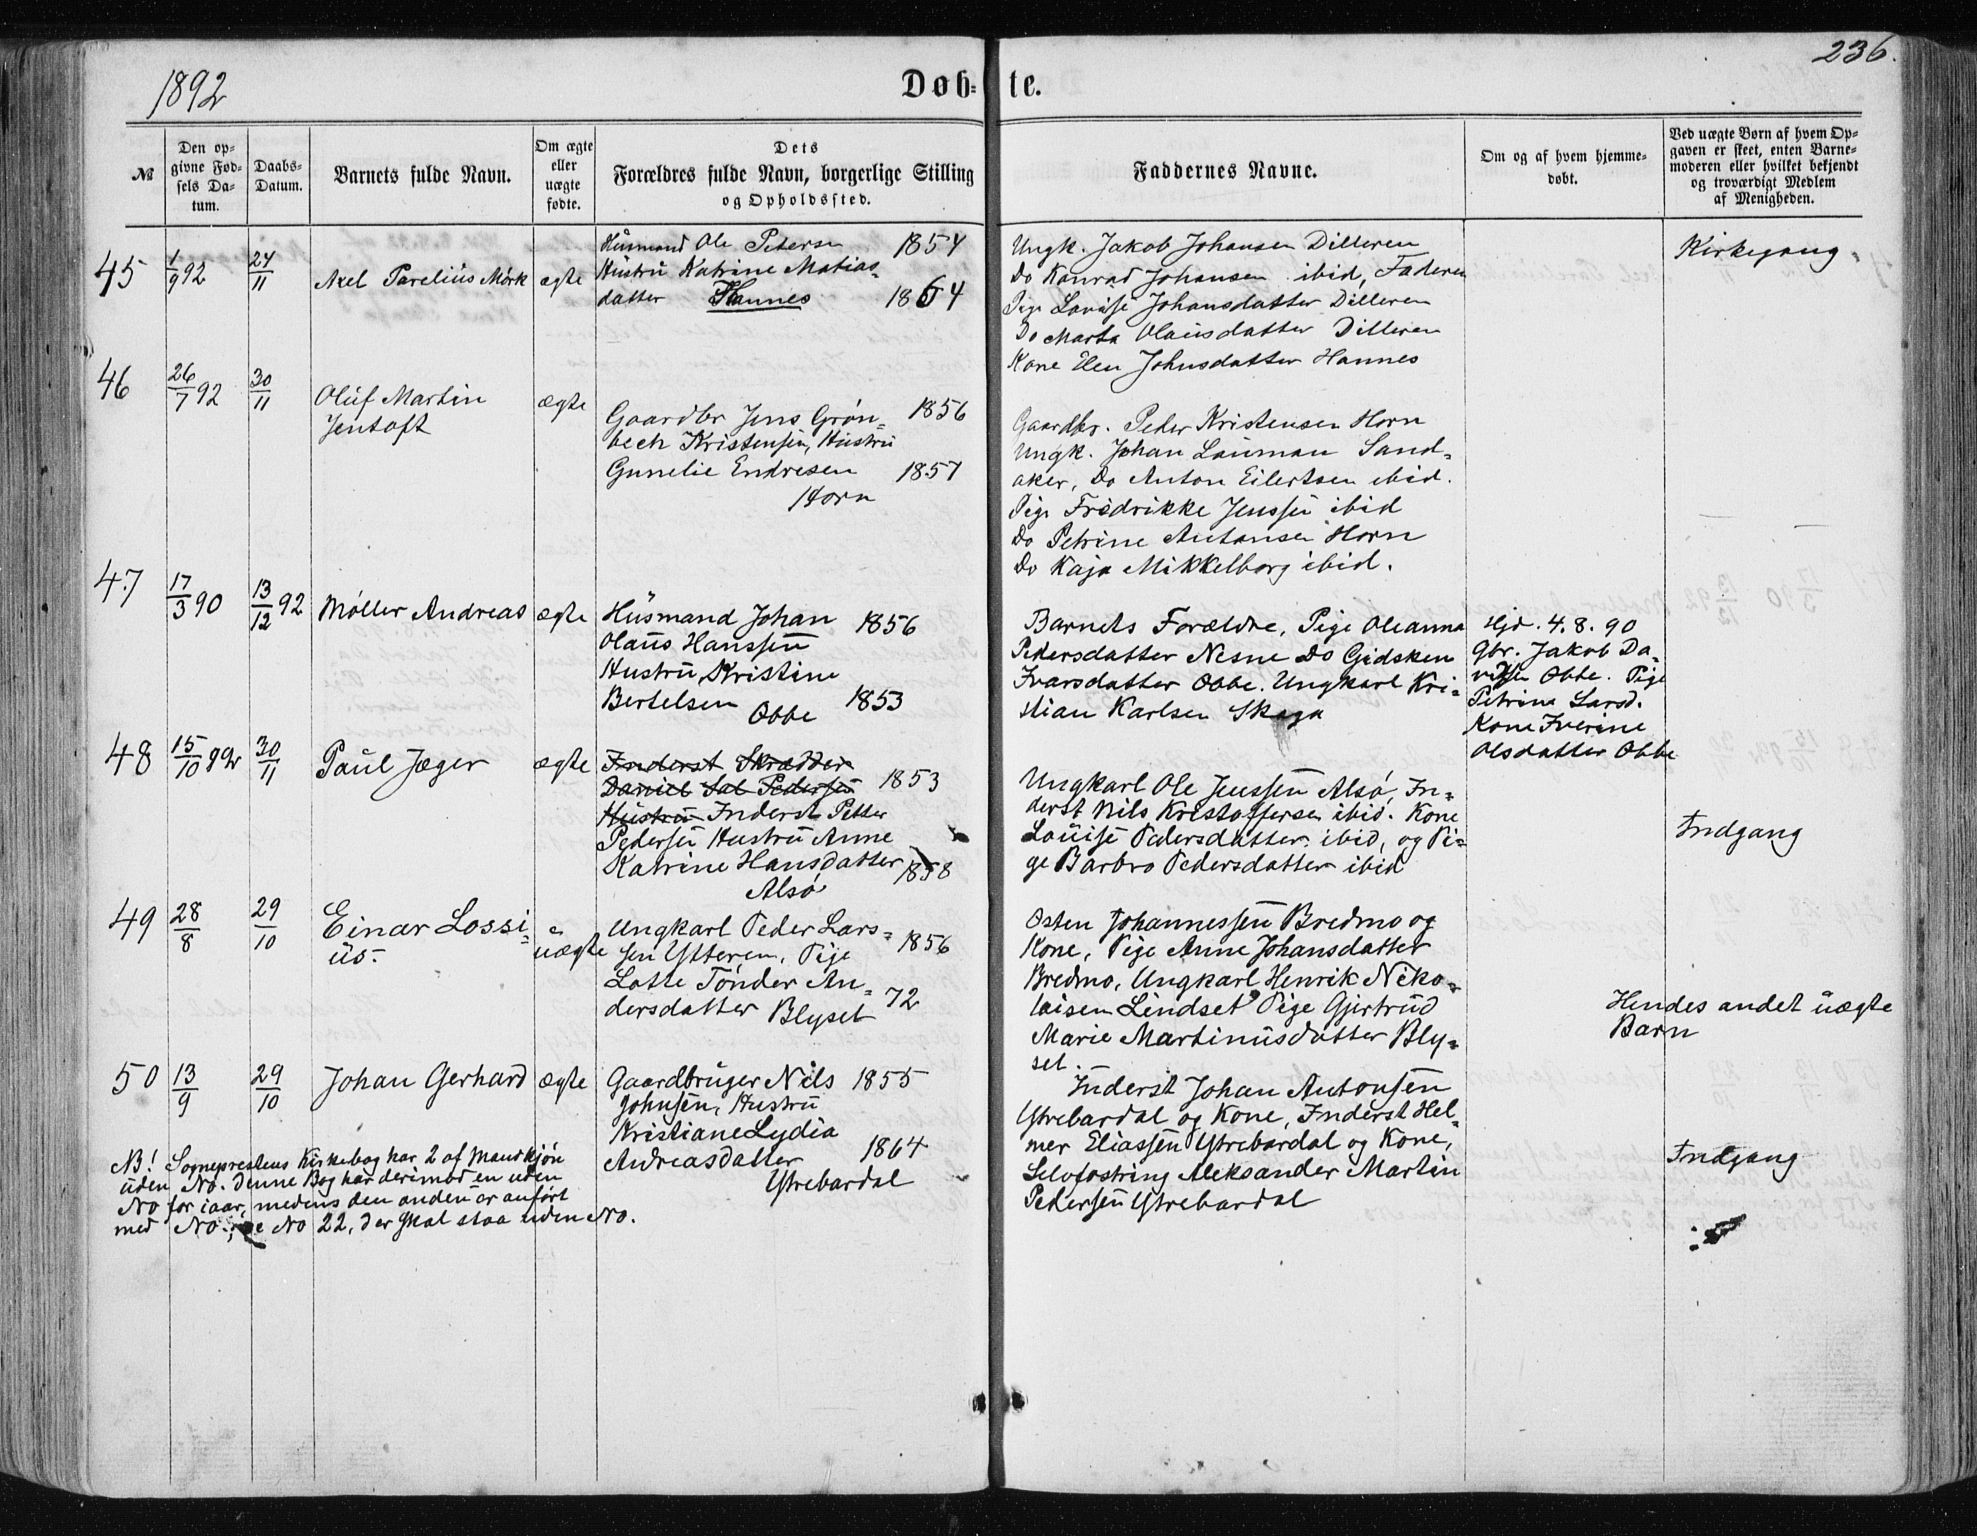 236.
1892
Døb= te.
№
Den op=
givne Fød=
sels Da=
tum.
Daabs=
Datum.
Barnets fulde Navn.
Om ægte
eller
uægte
fødte.
Dets
Forældres fulde Navn, borgerlige Stilling
og Opholdssted.
Faddernes Navne.
Om og af hvem hjemme=
døbt.
Ved uægte Børn af hvem Op=
gaven er skeet, enten Barne=
moderen eller hvilket bekjendt
og troværdigt Medlem
af Menigheden.
45
1/9 92
24/11
Axel Parelius Mørk
ægte
Husmand Ole Petersen 1854
Hustru Katrine Matias=
datter Hannes 1864
Ungk. Jakob Johansen Dilleren
Do Konrad Johansen ibid, Faderen
Pige Lovise Johansdatter Dilleren
Do Marta Olausdatter Dilleren
Kone Elen Johnsdatter Hannes
Kirkegang
46
26/7 92
30/11
Oluf Martin
Jentoft
ægte
Gaardbr Jens Grøn= 1856
bech Kristensen, Hustru
Gunelie Endresen 1857
Horn
Gaardbr. Peder Kristensen Horn
Ungk. Johan Lauman Sand=
aker, Do Anton Eilertsen ibid.
Pige Fredrikke Jenssen ibid
Do Petrine Antonsen Horn
Do Kaja Mikkelborg ibid.
47
17/3 90
13/12 92
Møller Andreas
ægte
Husmand Johan 1856
Olaus Hanssen
Hustru Kristine
Bertelsen 1853
Obbe
Barnets Forældre, Pige Oleanna
Pedersdatter Nesne Do Gidsken
Ivarsdatter Obbe. Ungkarl Kri=
stian Karlsen Skaga
Hjd. 4.8.90
Gbr. Jakob Da=
vidsen Obbe. Pige
Petrine Larsd.
Kone Iverine
Olsdatter Obbe
48
15/10 92
30/11
Paul Jæger
ægte
Inderst Skrædder
Daniel Sal Pedersen 1853
Hustru Inderst Petter
Pedersen Hustru Anne
Katrine Hansdatter 1858
Alsø
Ungkarl Ole Jenssen Alsø, In=
derst Nils Kristoffersen ibid. Kone
Louise Pedersdatter ibid, og Pi=
ge Barbro Pedersdatter ibid
Indgang
49
28/8
29/10
Einar Lossi=
us.
uægte
Ungkarl Peder Lars=
sen Ytteren, Pige 1856
Lotte Tønder An=
dersdatter Blyset 72
Osten Johannessen Bredmo og
Kone, Pige Anne Johansdatter
Bredmo, Ungkarl Henrik Niko=
laisen Lindset Pige Gjertrud
Marie Martinusdatter Bly=
set.
Hendes andet uægte
Barn
50
13/9
29/10
Johan Gerhard
ægte
Gaardbruger Nils 1855
Johnsen, Hustru
Kristiane Lydia
Andreasdatter 1864
Ytrebardal
Inderst Johan Antonsen
Ytrebardal og Kone, Inderst Hel=
mer Eliassen Ytrebardal og Kone,
Selvfostring Aleksander Martin
Pedersen Ytrebardal
Indgang
NB! Sogneprestens Kirkebog har 2 af Mandkjøn
uden No. denne Bog har derimod en uden
No for iaar, medens den anden er anført
med No. No 22, der skal staa uden No.